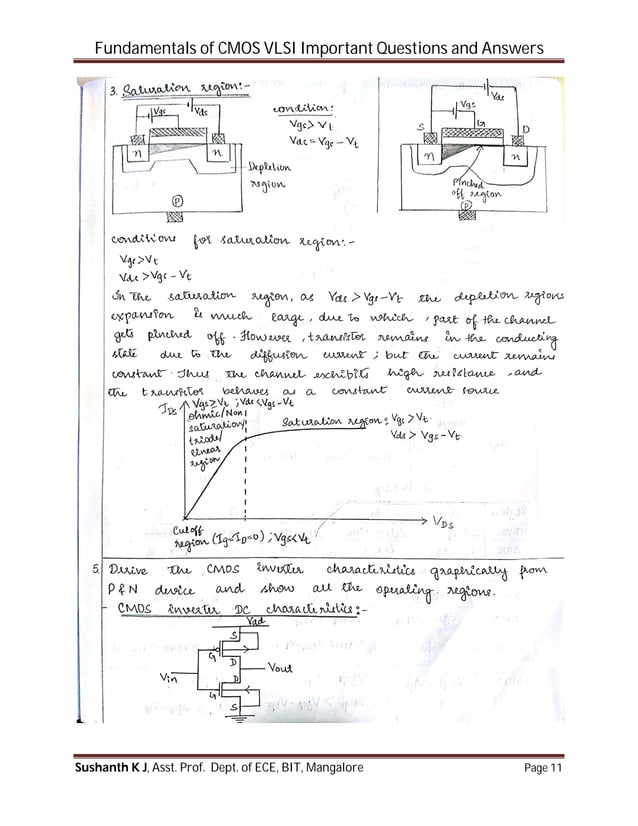 Fundamentals of CMOS VLSI Important Questions and Answers
3. Saturation region:-
Vgs Vds
condition:
Vgs > Vt
Vds = Vgs - Vt
n n
Depletion
region
P
Vds
Vgs
S G D
n n
Pinched
off region
P
conditions for saturation region:-
Vgs > Vt
Vds > Vgs - Vt
In the saturation region, as Vds > Vgs - Vt the depletion regions
expansion is much large, due to which, part of the channel
gets pinched off. However, transistor remains in the conducting
state due to the diffusion current; but the current remains
constant. Thus the channel exhibits high resistance, and
the transistor behaves as a constant current source
IDS
Vgs ≥ Vt ; Vds < Vgs - Vt
ohmic/Non
saturation/
triode/
linear
region
Saturation region: Vgs > Vt
Vds > Vgs - Vt
VDS
Cutoff
region (Ig=ID=0) ; Vgs < Vt
5. Derive the CMOS inverter characteristics graphically from
P & N device and show all the operating regions.
- CMOS inverter DC characteristics:-
Vdd
S
G
D
Vin
Vout
D
G
S
Sushanth K J, Asst. Prof. Dept. of ECE, BIT, Mangalore Page 11